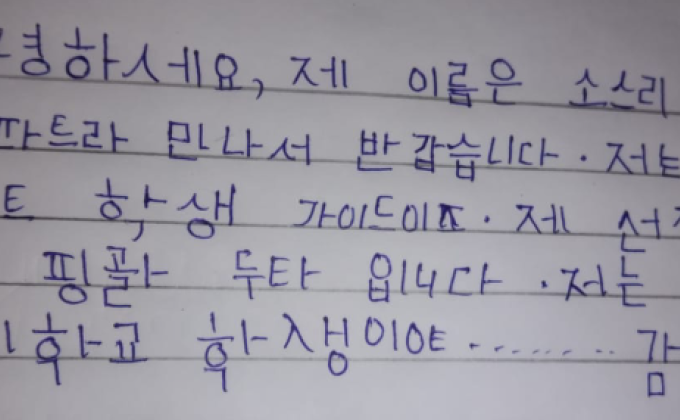 녕하세요, 제 이름은 소스리
파트라 민나서 반갑습니다. 저는
트 학생 가이드이
제 선
핑골라 두타 입니다. 저는
학교 학생이야........ 감